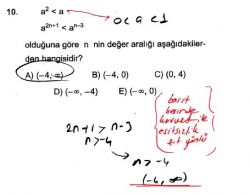 10. a² < a
0 < a < 1
a²ⁿ⁺¹ < aⁿ⁻³
olduğuna göre n nin değer aralığı aşağıdakiler-
den hangisidir?
A) (−4, ∞) B) (−4, 0) C) (0, 4)
D) (−∞, −4) E) (−∞, 0)
basit
kesirde
kuvvet ile
eşitsizlik
zıt yönlü
2n+1 > n−3
n > −4
n > −4
(−4, ∞)